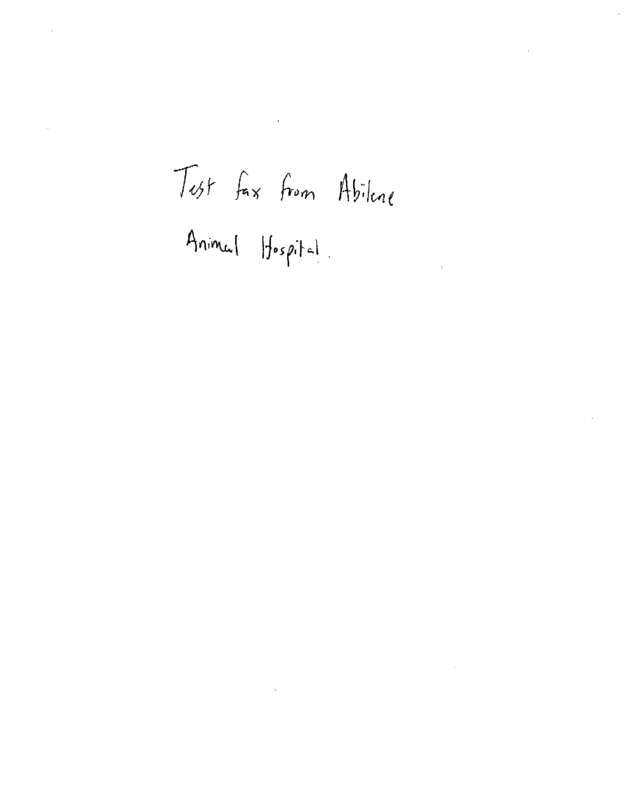 Test fax from Abilene
Animal Hospital.